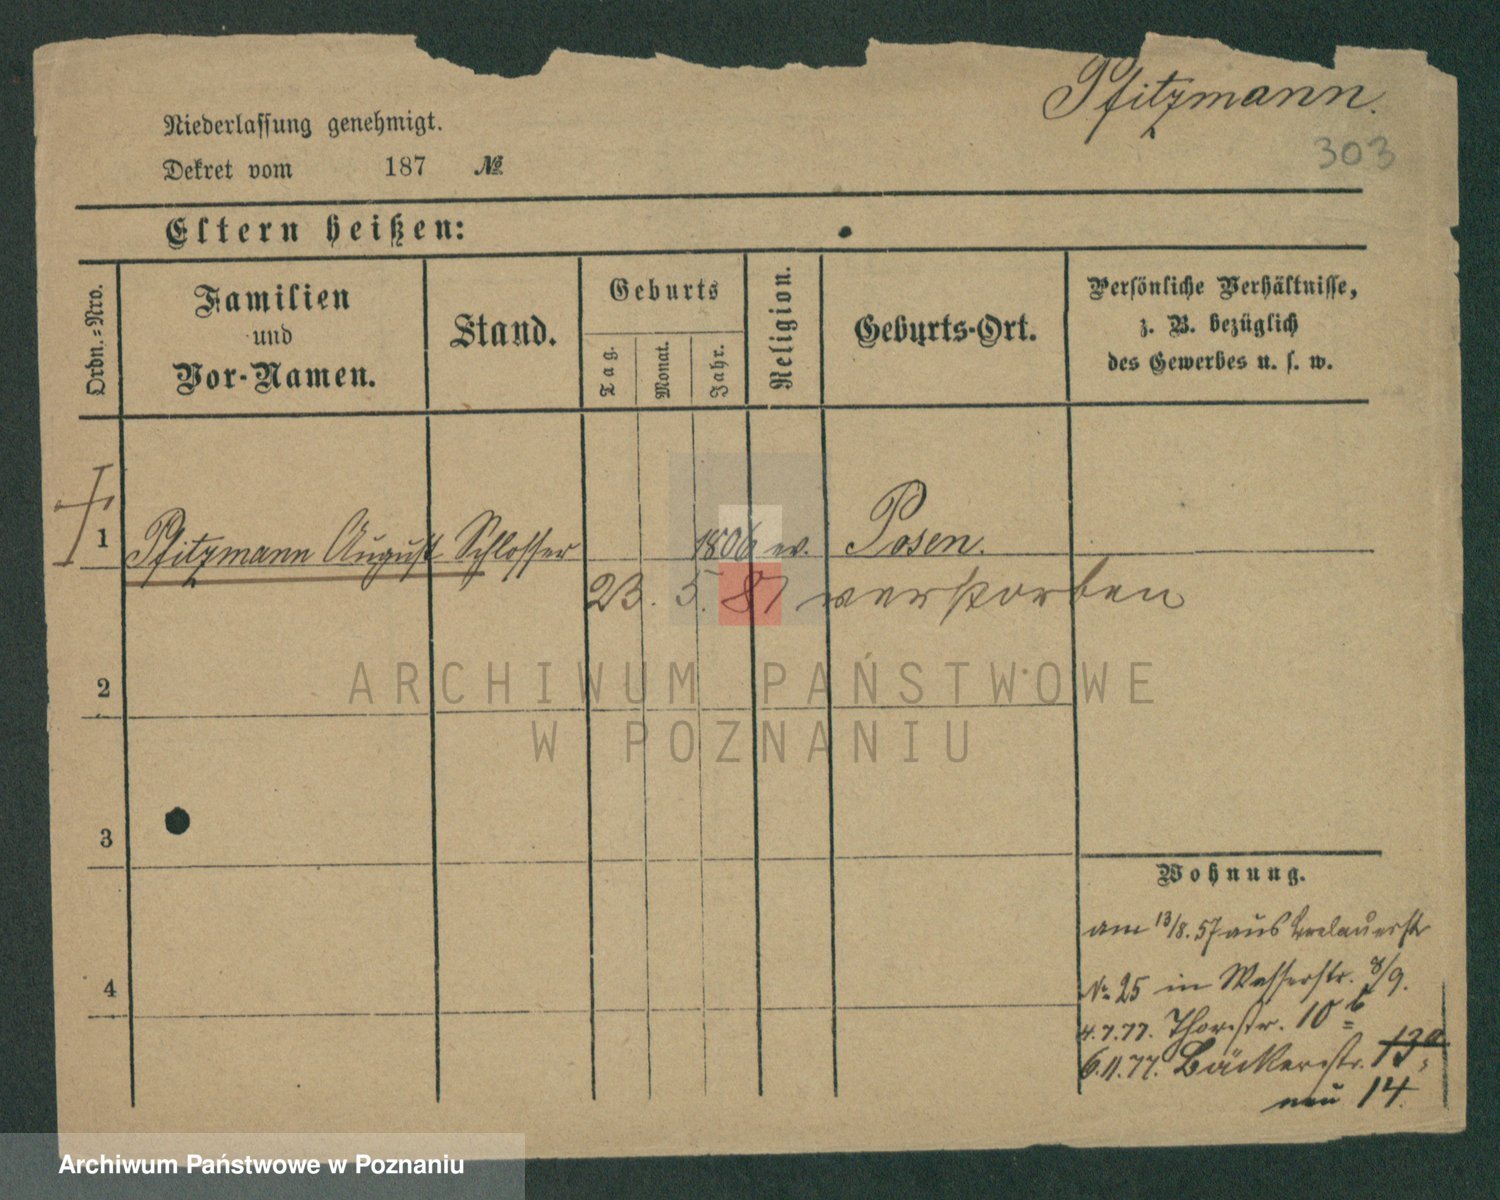 Pfitzmann.
303
Niederlassung genehmigt.
Dekret vom 187 №
Eltern heißen:
Ordn.-Nro.
Familien
und
Vor-Namen.
Stand.
Geburts
Tag.
Monat.
Jahr.
Religion.
Geburts-Ort.
Persönliche Verhältnisse,
z. B. bezüglich
des Gewerbes u. s. w.
1 Pfitzmann August Schlosser 1806 ev. Posen.
23. 5. 81 verstorben
2
3
4
Wohnung.
am 13/8. 57 aus Breslauerstr
No 25 in Wasserstr. 8/9.
4.7.77. Thorstr. 10 b
6.11.77. Bäckerstr. 13a
neu 14.
ARCHIWUM PAŃSTWOWE
W POZNANIU
Archiwum Państwowe w Poznaniu